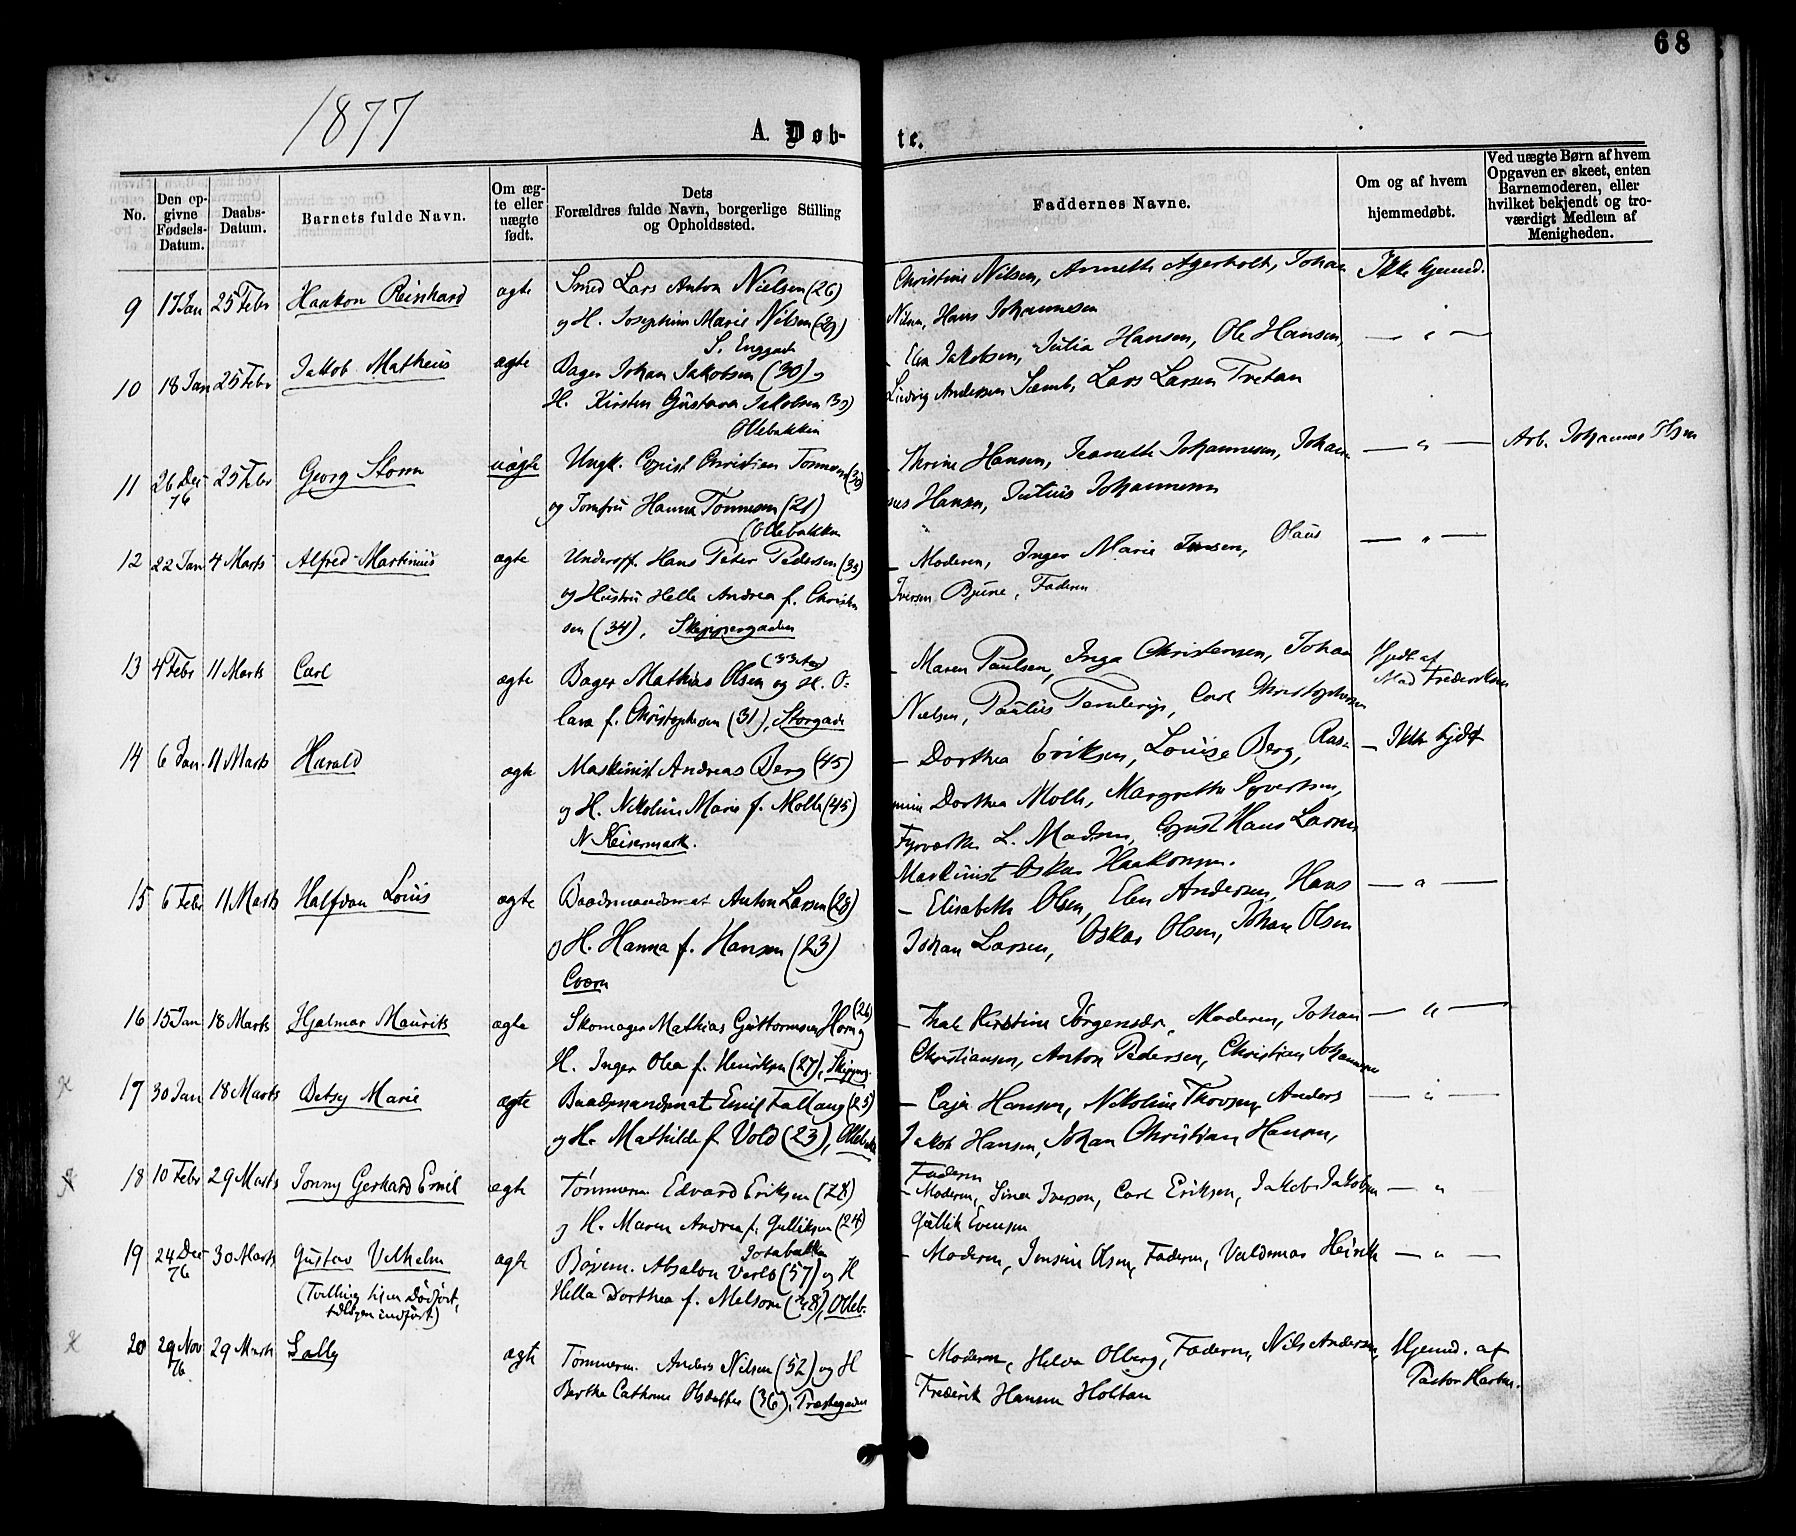 68
1877
A. Døb-
te.
No.
Den op-
givne
Fødsels-
Datum.
Daabs-
Datum.
Barnets fulde Navn.
Om æg-
te eller
uægte
født.
Dets
Forældres fulde Navn, borgerlige Stilling
og Opholdssted.
Faddernes Navne.
Om og af hvem
hjemmedøbt.
Ved uægte Børn af hvem
Opgaven er skeet, enten
Barnemoderen, eller
hvilket bekjendt og tro-
værdigt Medlem af
Menigheden.
9 17 Jan 25 Febr Haakon Reinhard ægte Smed Lars Anton Nielsen (26)
og H. Josephine Marie Nilsen (29)
S. Enggade
Christine Nilsen, Annette Agerholt, Johan Ikke hjemd.
Nilsen, Hans Johannesen
10 18 Jan 25 Febr Jakob Matheus ægte Bager Johan Jakobsen (30) og
H. Kirsten Gustava Jakobsen 30)
Ollebakken
– Elen Jakobsen, Julia Hansen, Ole Hansen, — " —
Ludvig Andersen Samb, Lars Larsen Tretan
11 26 Dec 76 25 Febr Georg Storm uægte Ungk. Copist Christian Tønnesen (30)
og Jomfru Hanna Tønnesen (21)
(Ollebakken
– Thrine Hansen, Jeanette Johannesen, Johan — " — Arb. Johannes Olsen
nes Hansen, Julius Johannesen
12 22 Jan 4 Marts Alfred Martinius ægte Underoff. Hans Peter Pedersen (33)
og Hustru Helle Andrea f. Christen
sen (34), Skippergaden
– Moderen, Inger Marie Jensen, Olaus — " —
Iversen Bjune, Faderen
13 4 Febr 11 Marts Carl ægte Bager Mathias Olsen (33 Aar) og H. O-
lava f. Christophersen (31), Storgade
– Maren Paulsen, Inga Christensen, Johan Hjdt af
Nielsen, Paulus, Carl Christophersen Mad Frederiksen
14 6 Jan 11 Marts Harald ægte Maskinist Andreas Berg (45)
og H. Nikoline Marie f. Molle (45)
N Keisemark.
– Dorthea Eriksen, Louise Berg, Ras- – Ikke hjdt
mine Dorthea Molle, Margrethe Syvertsen,
Fyrværker L. Madsen, Copist Hans Larsen
Maskinist Oskar Haakonsen.
15 6 Febr 11 Marts Halfdan Louis ægte Baadsmandsmat Anton Larsen (28)
og H. Hanna f. Hansen (23)
– Elisabeth Olsen, Elen Andersen, Hans — " —
Johan Larsen, Oskar Olsen, Johan Olsen
16 15 Jan 18 Marts Hjalmar Maurits ægte Skomager Mathias Guttormsen Horn (26) og
H. Inger Olea f. Henriksen (27), Skipperg.
– Thale Kirstine Jørgensen, Moderen, Johan — " —
Christiansen, Anton Pedersen, Christian Johannesen
17 30 Jan 18 Marts Betsy Marie ægte Baadsmandsmat Emil Fallang (25)
og H. Mathilde f. Vold (23), Ollebak
– Caja Hansen, Nikoline Thovsen, Anders — " —
Jakob Hansen, Johan Christian Hansen,
Faderen
18 10 Febr 29 Marts Jonny Gerhard Emil ægte Tømmerm. Edvard Eriksen (28)
og H. Maren Andrea f. Gulliksen (24)
– Moderen, Sina Iverson, Carl Eriksen, Jakob Jakobsen — " —
Gullik Evensen
19 24 Dec 76 30 Marts Gustav Vilhelm ægte Absalon Verlo (57) og H
(Tvilling
indført)
Hella Dorthea f. Melsom (38), Olleb.
– Moderen, Jensine Olsen, Faderen, Valdemar — " —
20 29 Nov 76 29 Marts Sally ægte Tømmerm. Anders Nilsen (52) og H
Berthe Cathrine Olsdatter (36), Præstegaden
– Moderen, Hilda Olberg, Faderen, Nils Andersen, Hjemd. af
Frederik Hansen Holtan Pastor